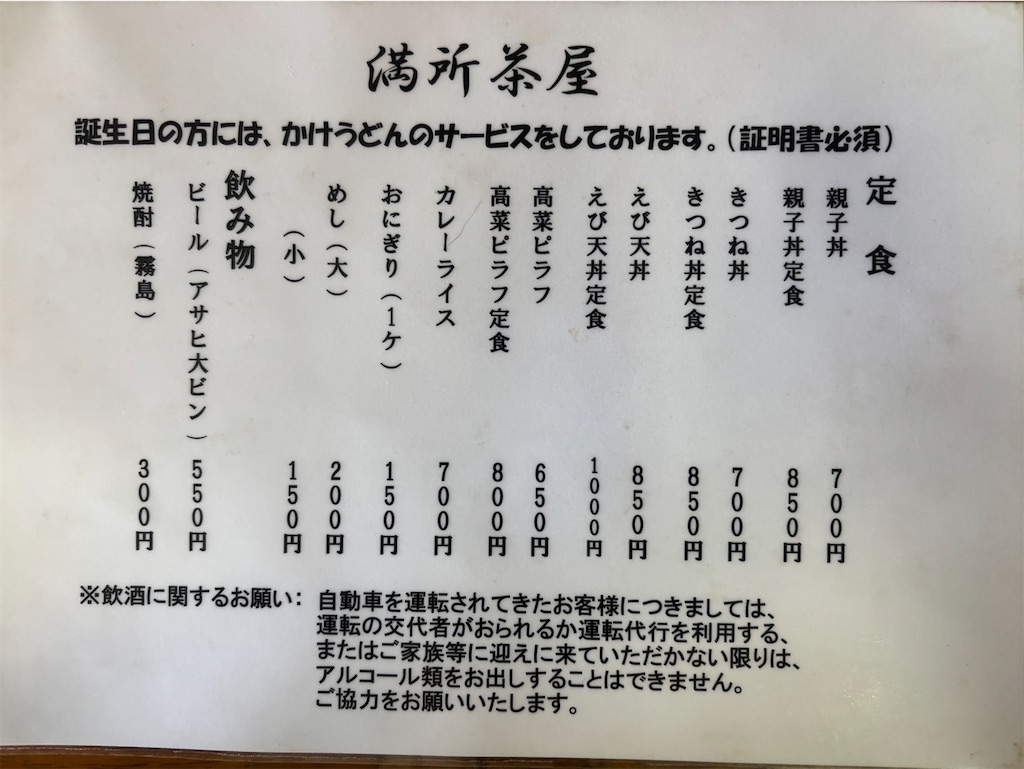 満所茶屋
誕生日の方には、かけうどんのサービスをしております。（証明書必須）
定食
親子丼 700円
親子丼定食 850円
きつね丼 700円
きつね丼定食 850円
えび天丼 850円
えび天丼定食 1000円
高菜ピラフ 650円
高菜ピラフ定食 800円
カレーライス 700円
おにぎり（1ケ） 150円
めし（大） 200円
（小） 150円
飲み物
ビール（アサヒ大ビン） 550円
焼酎（霧島） 300円
※飲酒に関するお願い： 自動車を運転されてきたお客様につきましては、
運転の交代者がおられるか運転代行を利用する、
またはご家族等に迎えに来ていただかない限りは、
アルコール類をお出しすることはできません。
ご協力をお願いいたします。